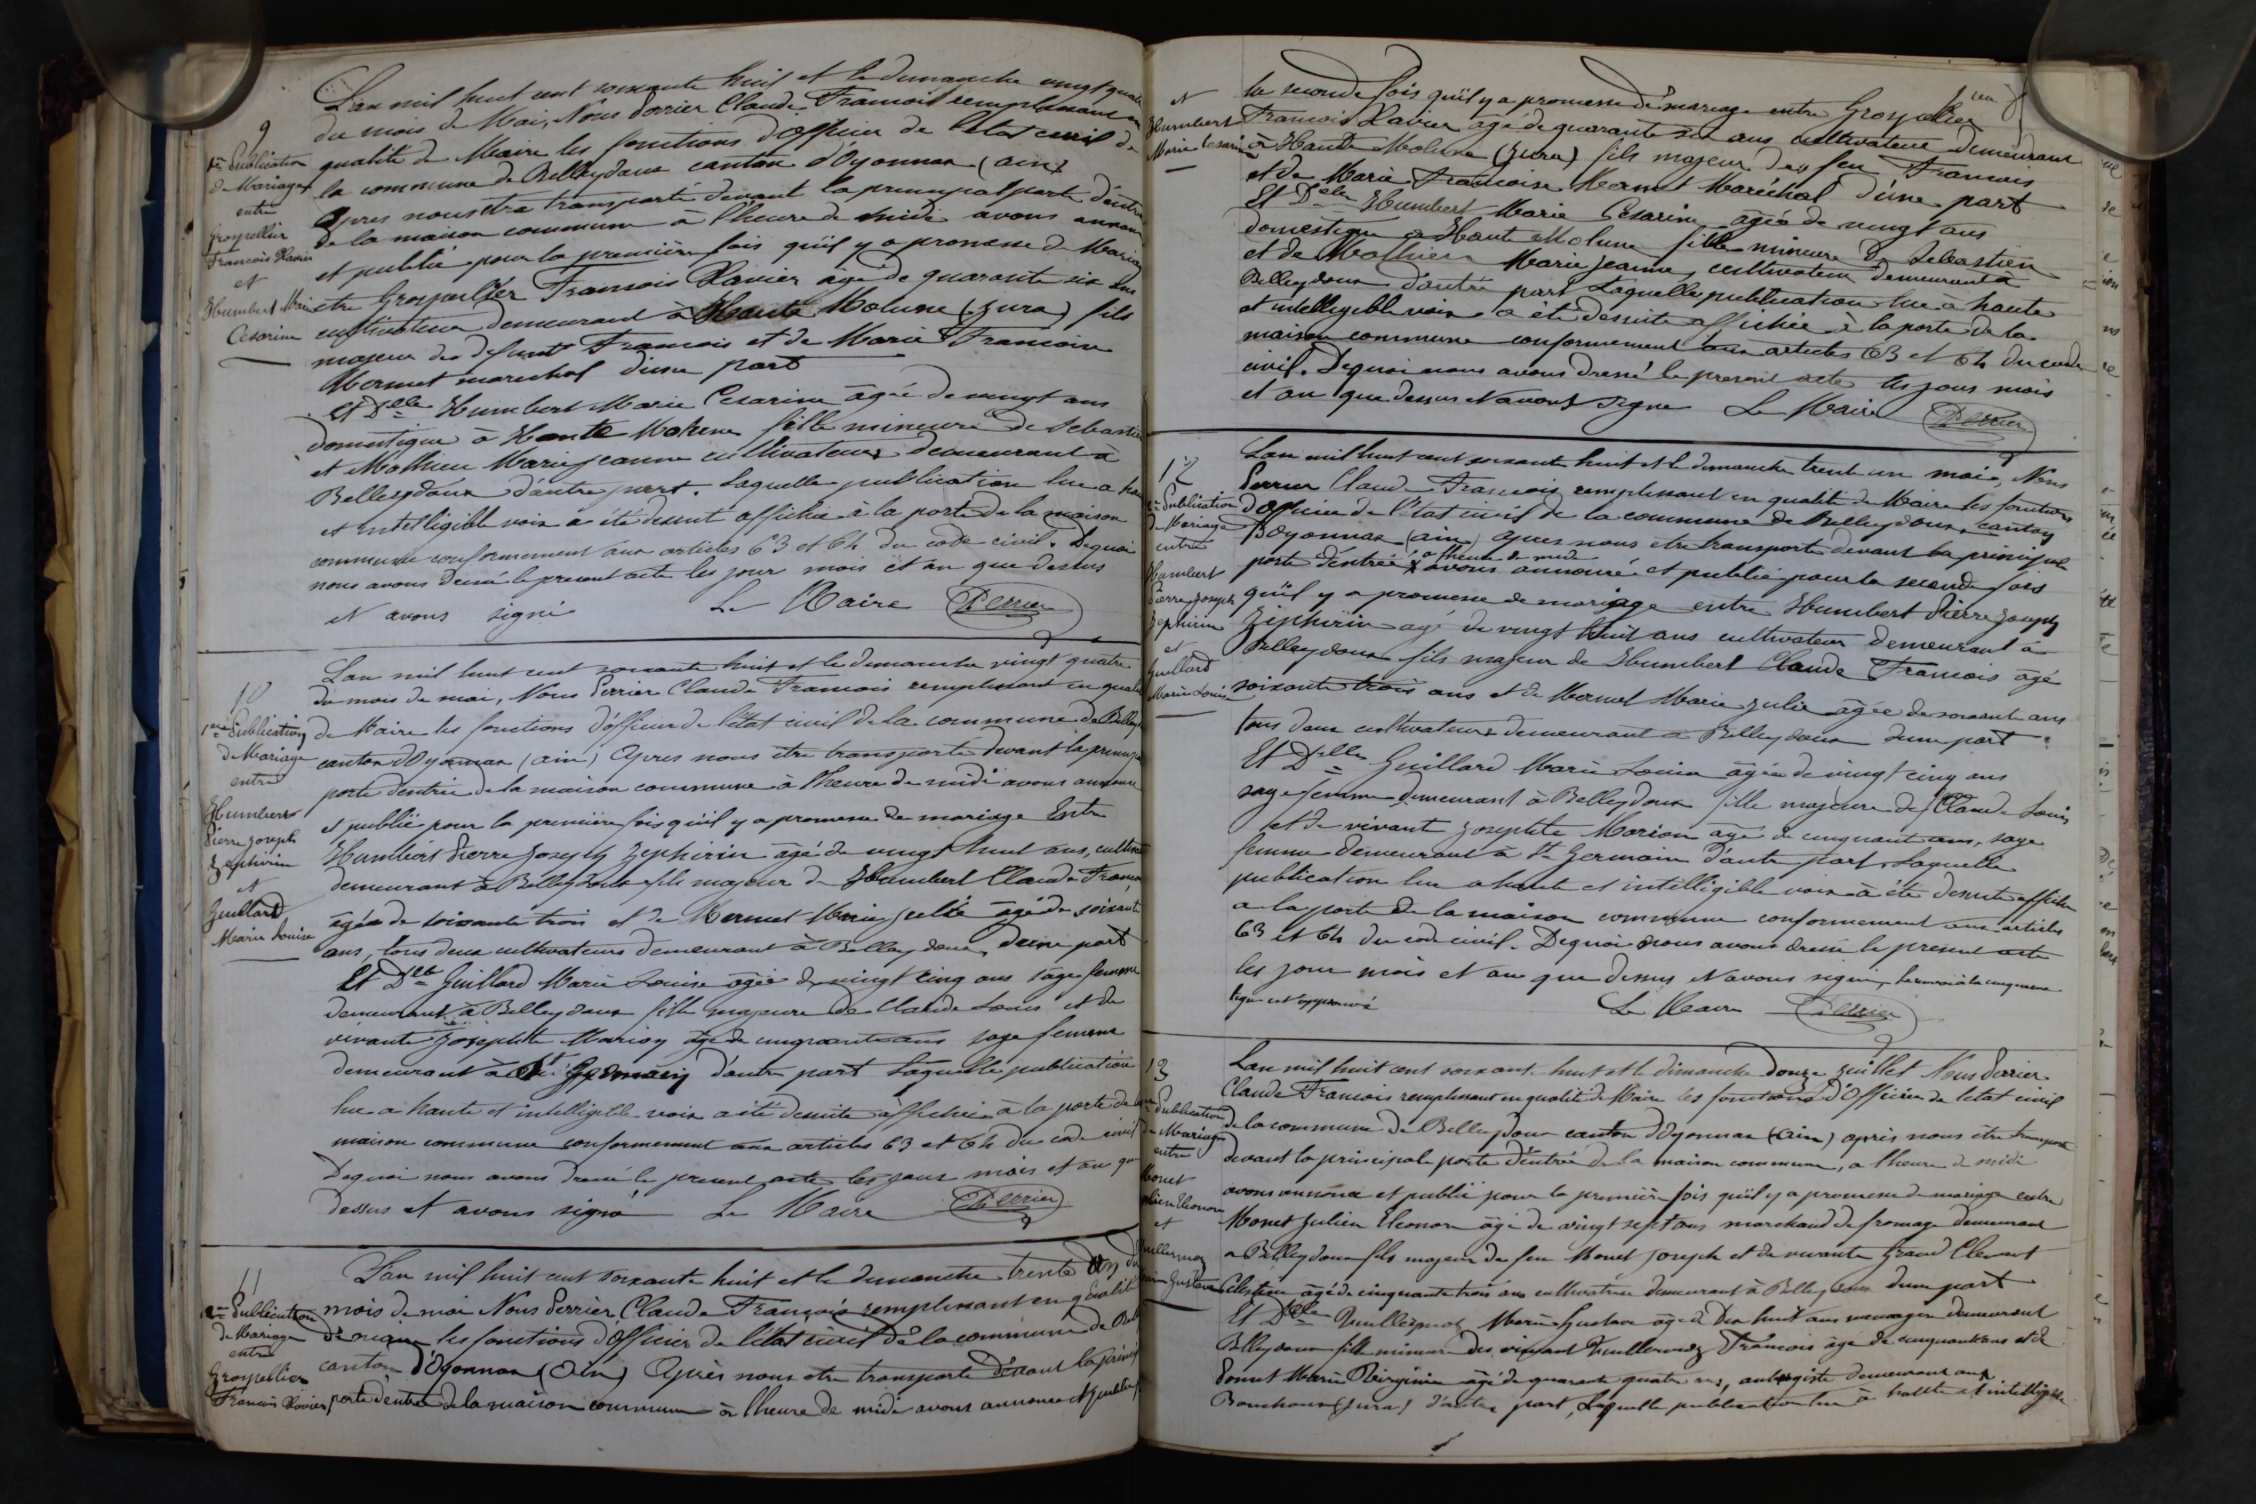 9
1re Publication
de Mariage
entre
Grospellier
Francois Xavier
et
Humbert Marie
Cesarine
L'an mil huit cent soixante huit et le dimanche vingt quatre
du mois de Mai, Nous Perrier Claude Francois remplissant en
qualité de Maire les fonctions d'officier de l'état civil de
la commune de Belleydoux canton d'Oyonnax (ain)
Apres nous etre transporté devant la principal porte d'entrée
de la maison commune à l'heure de midi avons annoncé
et publié pour la première fois qu'il y a promesse de Mariage
etre Grospellier Francois Xavier âgé de quarante six ans
cultivateur demeurant à Haute Molune (Jura) fils
majeur de defunt Francois et de Marie Francoise
Mermet marechal d'une part
Et Delle Humbert Marie Cesarine âgée de vingt ans
domestique à Haute Molune fille mineure de Sebastien
et Mathieu Marie Jeanne cultivateurs demeurant à
Belleydoux d'autre part. Laquelle publication lue a haute
et intelligible voix a été desuit affichée à la porte de la maison
commune conformement aux articles 63 et 64 du code civil. Dequoi
nous avons dressé le present acte les jour mois et an que dessus
et avons signé Le Maire Perrier
10
1re Publication
de Mariage
entre
Humbert
Pierre Joseph
Zephirin
et
Guillard
Marie Louise
L'an mil huit cent soixante huit et le dimanche vingt quatre
du mois de mai, Nous Perrier Claude Francois remplissant en qualité
de Maire les fonctions d'officier de l'état civil de la commune de Belleydoux
canton d'Oyonnax (ain) Apres nous être transporté devant la principale
porte d'entrée de la maison commune à l'heure de midi avons annoncé
et publié pour la première fois qu'il y a promesse de mariage Entre
Humbert Pierre Joseph Zephirin âgé de vingt huit ans, cultivateur
demeurant à Belleydoux fils majeur de Humbert Claude Francois
âgée de soixante trois et de Mermet Marie Julie âgé de soixante
ans, tous deux cultivateurs demeurant à Belleydoux, d'une part
Et Delle Guillard Marie Louise âgée de vingt cinq ans sage femme
demeurant à Belleydoux fille majeure de Claude Louis et de
vivante Josephte Marion âgé de cinquante ans sage femme
demeurant à St Germain d'autre part Laquelle publication
lue a haute et intelligible voix a été desuite affichée à la porte de la
maison commune conformement aux articles 63 et 64 du code civil
Dequoi nous avons dressé le present acte les jour mois et an que
dessus et avons signé Le Maire Perrier
11
2me Publication
de Mariage
entre
Grospellier
Francois Xavier
L'an mil huit cent soixante huit et le dimanche trente un du
mois de mai Nous Perrier Claude François remplissant en qualité
de maire les fonctions d'Officier de l'état civil de la commune de
canton d'Oyonnax (Ain) Après nous etre transporté devant la
porte d'entrée de la maison commune à l'heure de midi avons annoncé et publié
et
Humbert
Marie Cesarine
la seconde fois qu'il y a promesse de mariage entre Grospellier
Francois Xavier âgé de quarante six ans cultivateur demeurant
à Haute Molune (Jura) fils majeur de feu Francois
et de Marie Francoise Mermet Maréchal d'une part
Et Delle Humbert Marie Cesarine âgée de vingt ans
domestique à Haute Molune fille mineure de Sebastien
et de Mathieu Marie Jeanne, cultivateur demeurant à
Belleydoux d'autre part Laquelle publication lue a haute
et intelligible voix a été desuite affichée à la porte de la
maison commune conformement aux articles 63 et 64 du code
civil. Dequoi nous avons dressé le present acte les jour mois
et an que dessus et avons signé Le Maire Perrier
12
2me Publication
de Mariage
entre
Humbert
Pierre Joseph
Zephirin
et
Guillard
Marie Louise
L'an mil huit cent soixante huit et le dimanche trente un mai, Nous
Perrier Claude Francois remplissant en qualité de Maire les fonctions
d'Officier de l'état civil de la commune de Belleydoux, canton
d'Oyonnax (ain) Apres nous etre transporté devant la principale
porte d'entrée à l'heure de midi avons annoncé et publié pour la seconde fois
qu'il y a promesse de mariage entre Humbert Pierre Joseph
Zéphirin âgé de vingt huit ans cultivateur demeurant à
Belleydoux fils majeur de Humbert Claude Francois âgé
soixante trois ans et de Mermet Marie Julie âgée de soixante ans
tous deux cultivateurs demeurant à Belleydoux d'une part.
Et Delle Guillard Marie Louise âgée de vingt cinq ans
sage femme demeurant à Belleydoux fille majeure de Claude Louis
et de vivant Josephte Marion âgé de cinquante ans, sage
femme demeurant à St Germain d'autre part, Laquelle
publication lue a haute et intelligible voix a été desuite affichée
a la porte de la maison commune conformement aux articles
63 et 64 du code civil. Dequoi nous avons dressé le present acte
les jour mois et an que dessus et avons signé, le renvoi à la cinquieme
ligne est approuvé
Le Maire Perrier
13
Publication
de Mariage
entre
Monet
Julien Eleonor
et
Vuillermoz
Marie Gustave
L'an mil huit cent soixante huit et le dimanche douze Juillet Nous Perrier
Claude Francois remplissant en qualité de Maire les fonctions d'Officier de l'etat civil
de la commune de Belleydoux canton d'Oyonnax (ain) après nous être transporté
devant la principale porte d'entrée de la maison commune, a l'heure de midi
avons annoncé et publié pour la première fois qu'il y a promesse de mariage entre
Monet Julien Eleonor âgé de vingt sept ans marchand de fromage demeurant
a Belleydoux fils majeur de feu Monet Joseph et de vivante Grand Clement
Celestine âgé de cinquante trois ans cultivatrice demeurant à Belleydoux d'une part
Et Delle Vuillermoz Marie Gustave âgé de Dix huit ans menagere demeurant
Belleydoux fille mineure des vivant Vuillermoz Francois âgé de cinquante ans et de
Marie Virginie âgé de quarante quatre ans, aubergiste demeurant aux
Bouchoux (Jura) d'autre part, Laquelle publication lue à haute et intelligible